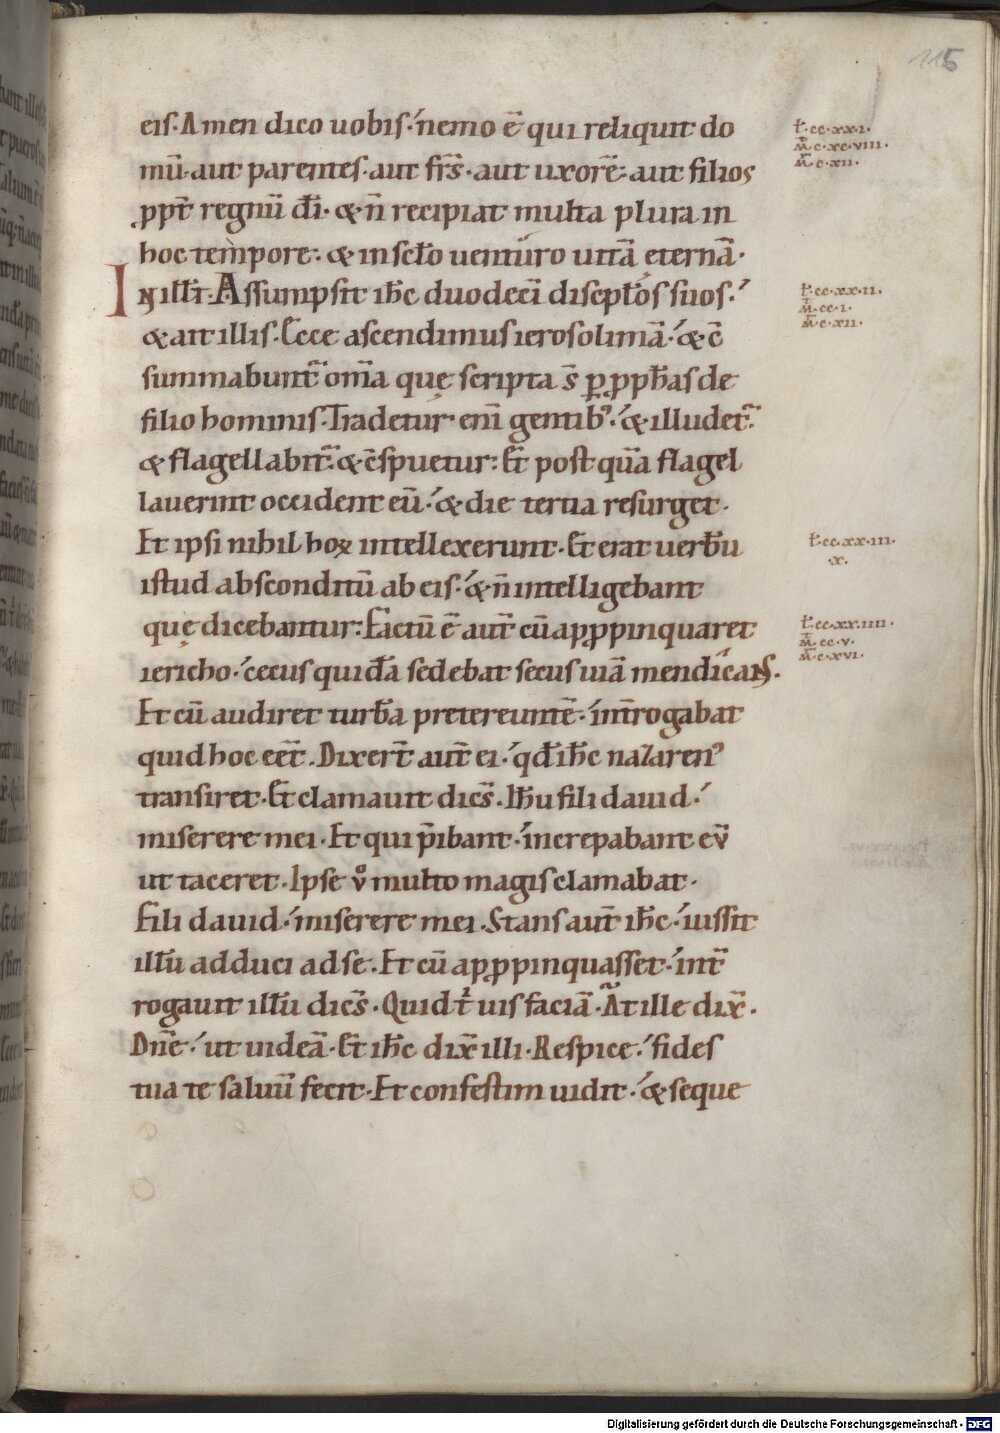 115
eis. Amen dico uobis. nemo ē qui reliquit do
mū. aut parentes. aut frs̄. aut uxorē. aut filios
ꝓpt̄ regnū dī. & n̄ recipiat multa plura in
hoc tempore. & in sclo uenturo uitā eternā.
IN ill̄t. Assumpsit ih̄c duodecī discplos suos.
& ait illis. Ecce ascendimus ierosolimā. & c̄
summabunt̄ om̄a quę scripta s̄ ꝑ ꝓph̄as de
filio hominis. Tradetur enī gentib; & illudet̄.
& flagellabit̄. & c̄spuetur. Et post quā flagel
lauerint occident eū. & die tertia resurget.
Et ipsi nihil hoꝝ intellexerunt. Et erat uerbū
istud absconditū ab eis. & n̄ intelligebant
quę dicebantur. Factū ē aut̄ cū apꝓpinquaret
iericho. cecus quidā sedebat secus uiā mendicans.
Et cū audiret turbā pretereuntē. int̄rogabat
quid hoc eet̄. Dixer̄t aut̄ ei. qd̄ ih̄c nazaren⁹
transiret. Et clamauit dics̄. Ih̄u fili dauid.
miserere mei. Et qui p̄ibant. increpabant eū
ut taceret. Ipse v̊ multo magis clamabat.
Fili dauid. miserere mei. Stans aut̄ ih̄c. iussit
illū adduci ad se. Et cū apꝓpinquasset. int̄
rogauit illū dics̄. Quid t̄ uis faciā. At ille dix̄.
Dn̄e. ut uideā. Et ih̄c dix̄ illi. Respice. fides
tua te saluū fecit. Et confestim uidit. & seque
ł. cc. xx. i.
m̄. c. xc. viii.
m̄. c. xii.
ł. cc. xx. ii.
m̄. cc. i.
m̄. c. xii.
ł. cc. xx. iii.
.x.
ł. cc. xx. iiii.
m̄. cc. v.
m̄. c. xvi.
Digitalisierung gefördert durch die Deutsche Forschungsgemeinschaft - DFG